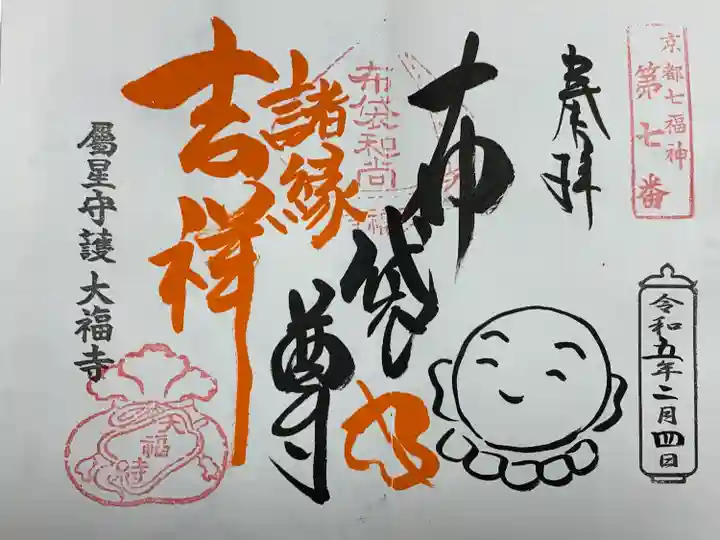 京都七福神
第七番
奉拝
令和五年二月四日
布袋尊
布袋和尚
諸縁
吉祥
屬星守護 大福寺
大福寺